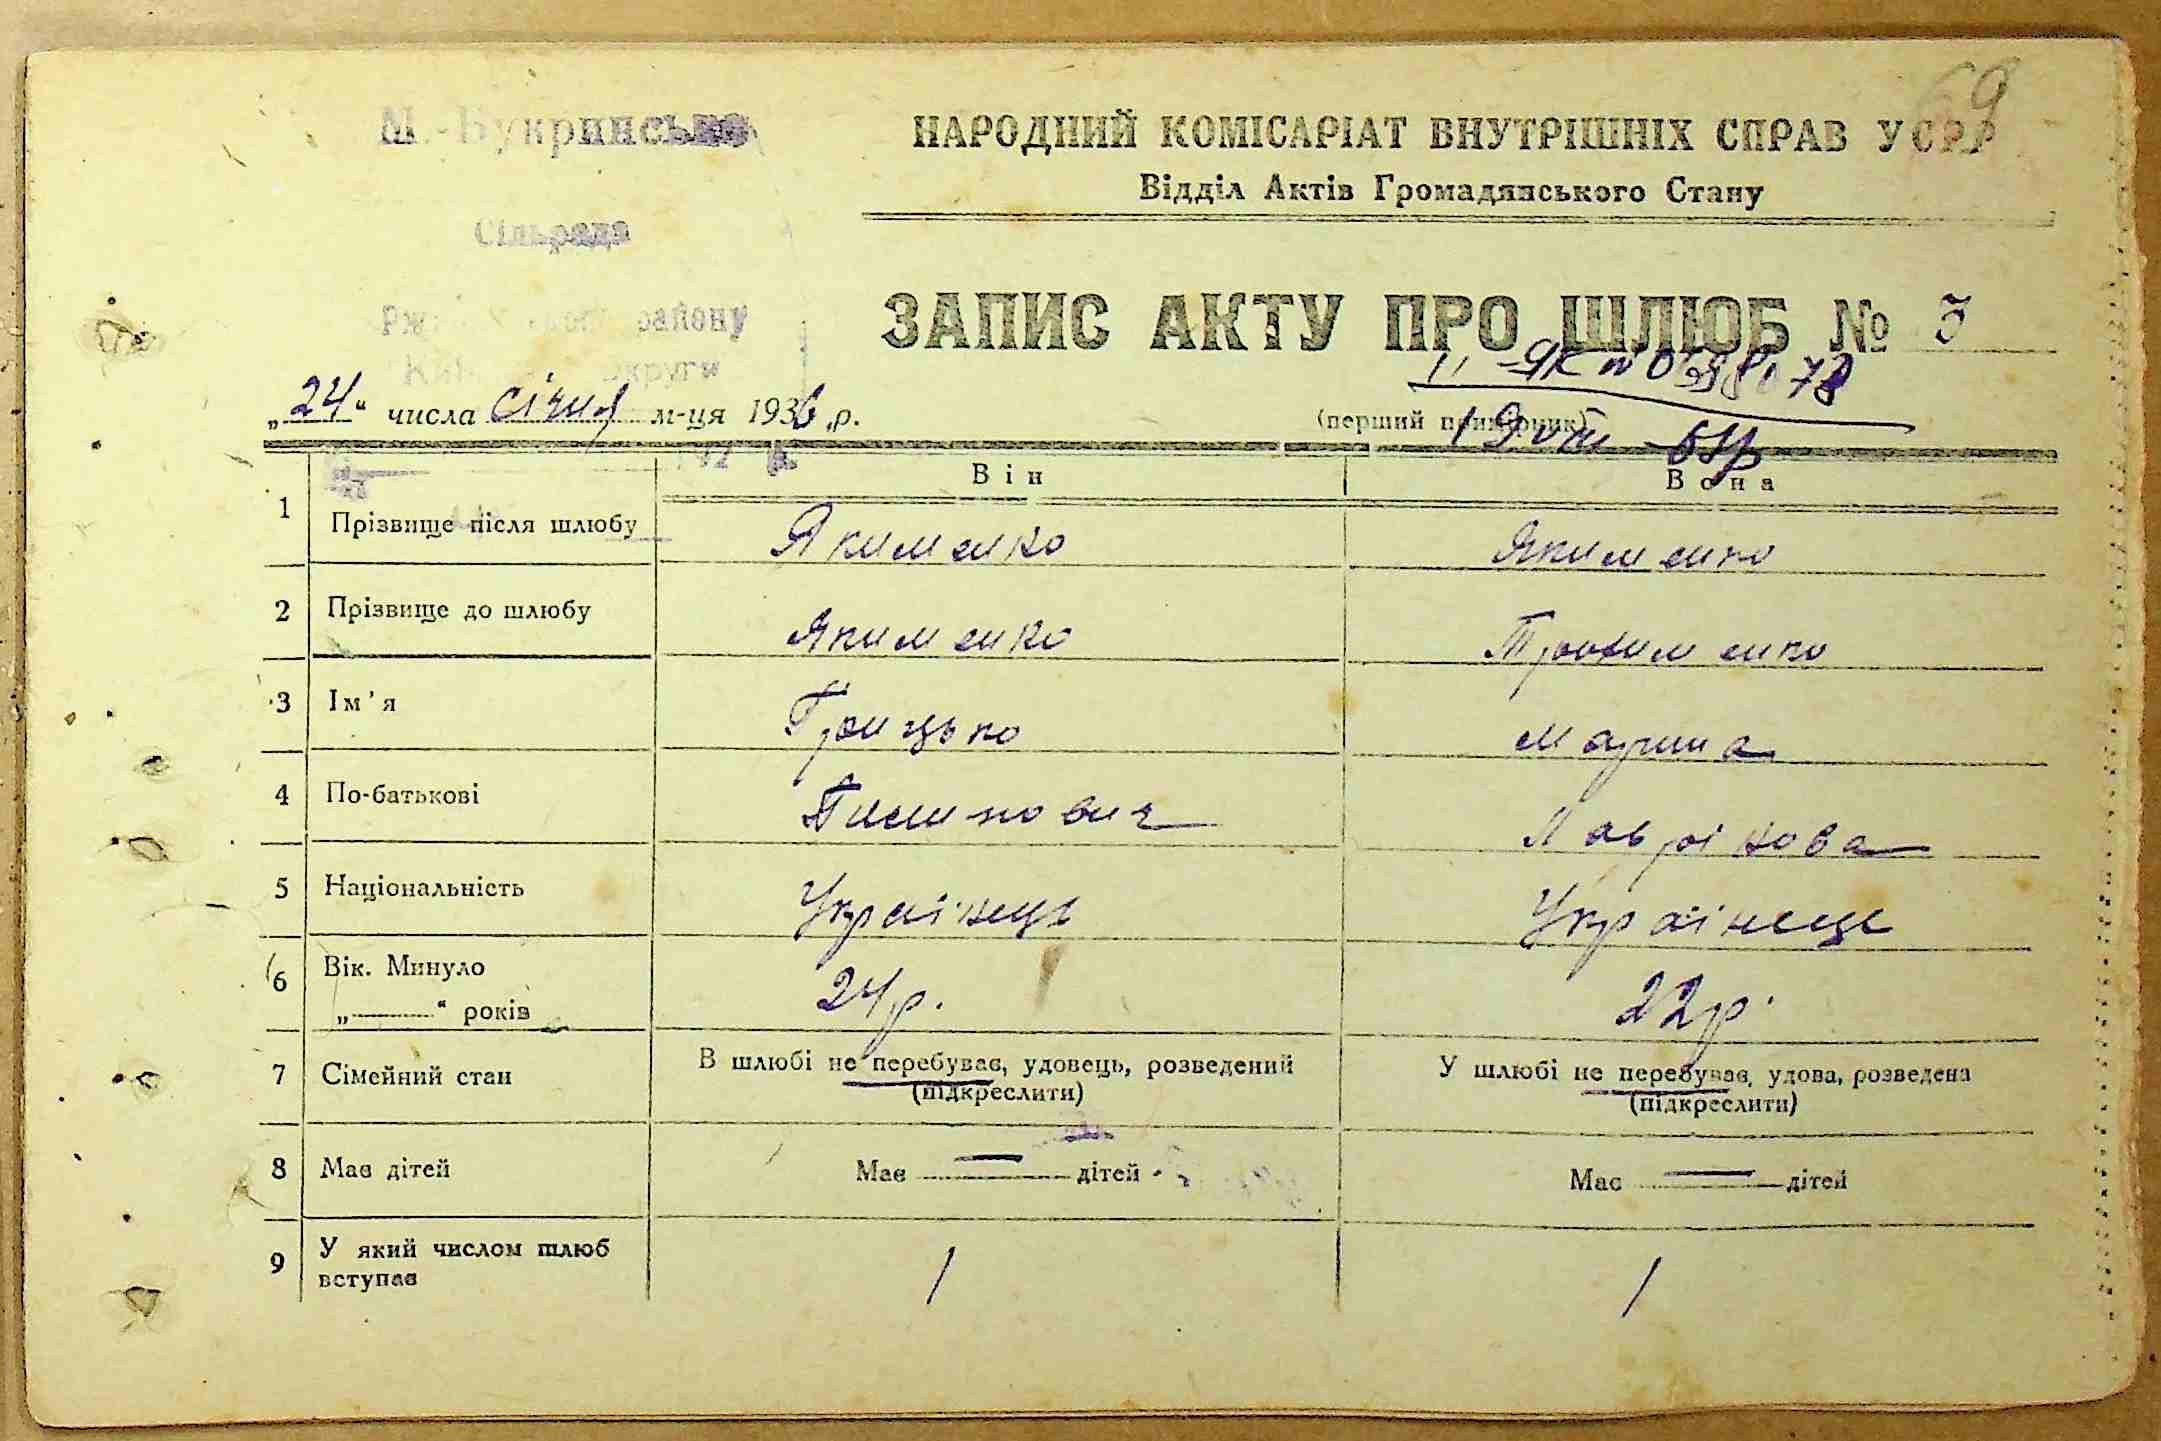 69
М.-Букринська
НАРОДНИЙ КОМІСАРІАТ ВНУТРІШНІХ СПРАВ УСРР
Відділ Актів Громадянського Стану
Сільрада
району
округи
ЗАПИС АКТУ ПРО ШЛЮБ № 3
„24“ числа січня м-ця 1936 р.
(перший примірник)
Він Вона
1 Прізвище після шлюбу Якименко Якименко
2 Прізвище до шлюбу Якименко Трохименко
3 Ім'я Грицько Марина
4 По-батькові Лаврінова
5 Національність Українець Українець
6 Вік. Минуло „ “ років 24р. 22р.
7 Сімейний стан В шлюбі не перебуває, удовець, розведений (підкреслити) У шлюбі не перебуває, удова, розведена (підкреслити)
8 Має дітей Має — дітей Має — дітей
9 У який числом шлюб вступає 1 1